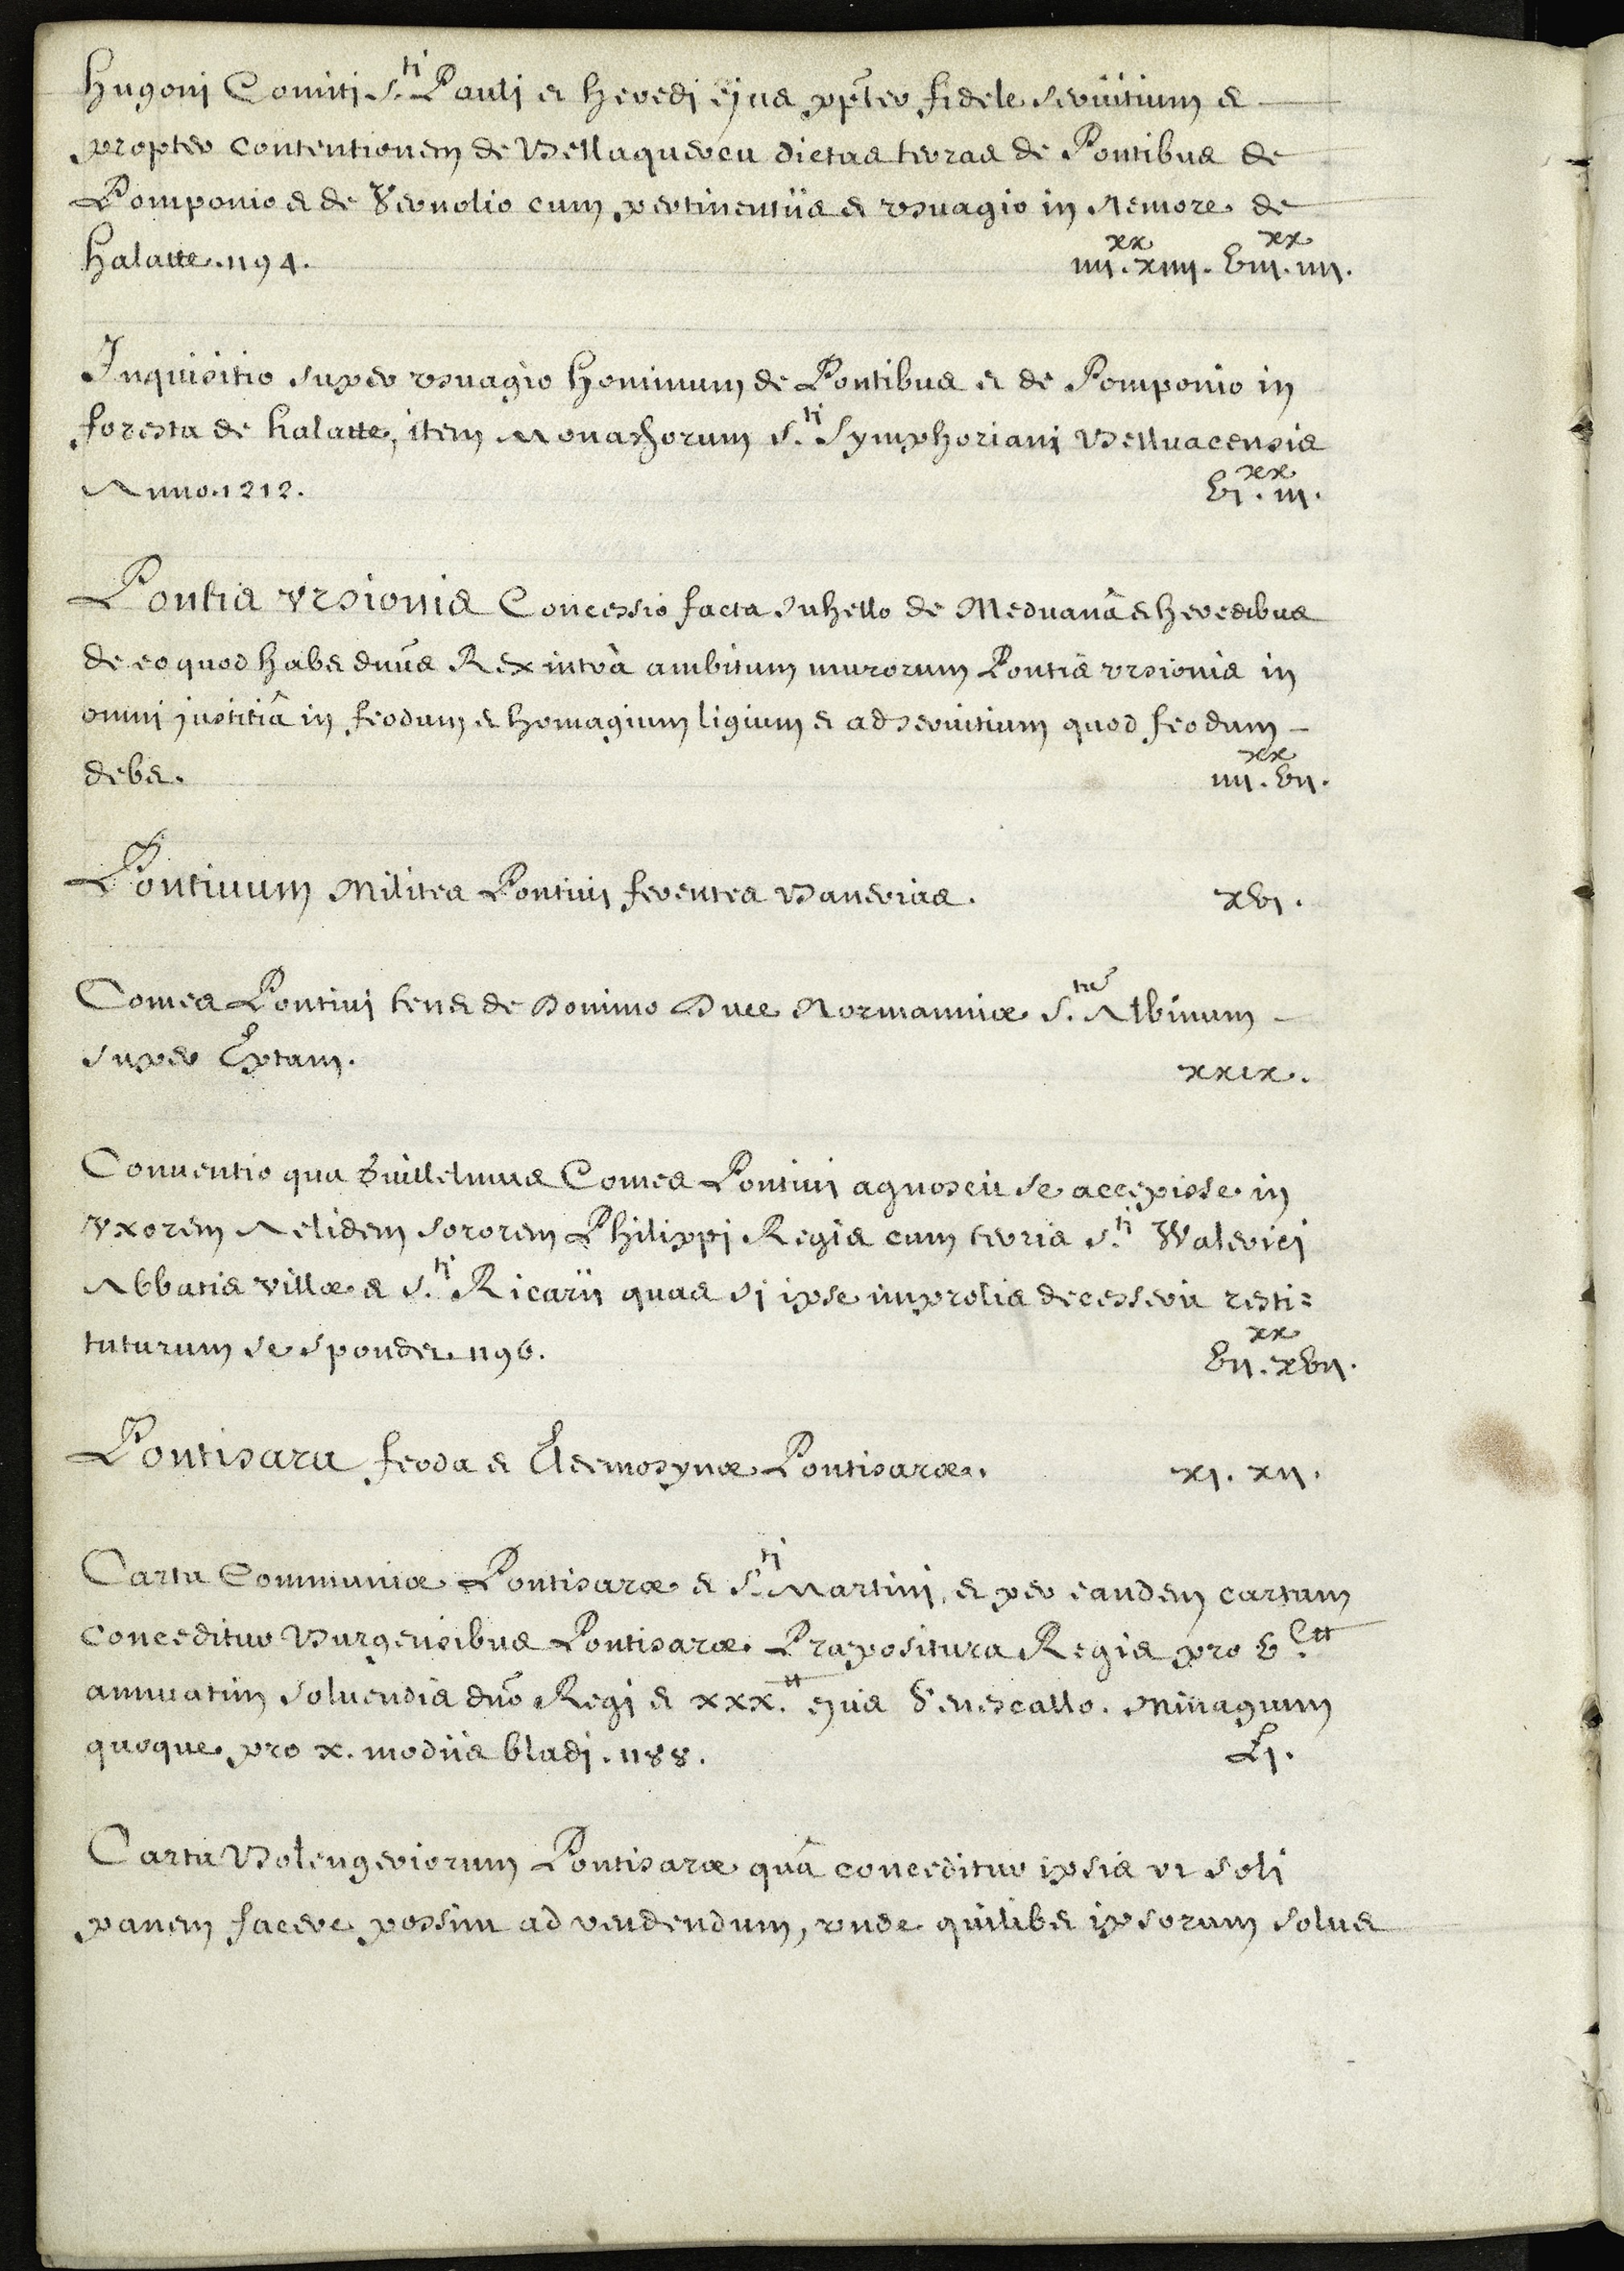 Hugoni Comiti S.ti Pauli et heredi ejus ppter fidele servitium et
propter contentionem de Bellaquercu dictas terras de Pontibus de
Pomponio et de Vernolio cum pertinentiis et usuagio in Nemore de
halatte. 1194. iiii.xx xiiii. viii.xx iiii.
Inquisitio super usuagio hominum de Pontibus et de Pomponio in
foresta de halatte, item Monachorum S.ti Symphoriani Belluacensis
Anno. 1212. vi.xx iii.
Pontis Ursionis Concessio facta Juhello de Meduanâ et heredibus
de eo quod habet dnûs Rex intrà ambitum murorum Pontis ursionis in
omni justitiâ in feodum et homagium ligium et ad servitium quod feodum
debet. iiii.xx vii.
Pontivum Milites Pontivi ferentes Banerias. xvi.
Comes Pontivi tenet de Domino Duce Normanniæ S.tu Albinum
super Eptam. xxix.
Conventio qua Guillelmus Comes Pontivi agnoscit se accepisse in
Uxorem Aelidem sororem Philippi Regis cum terris S.ti Walerici
Abbatis villæ et S.ti Ricarii quas si ipse improlis decesserit resti=
tuturum se spondet 1196. vii.xx xvii.
Pontisara feoda et Eleemosynæ Pontisaræ. xi. xii.
Carta Communiæ Pontisaræ et S.ti Martini, et per eandem cartam
conceditur Burgensibus Pontisaræ Præpositura Regis pro v.C tt
annuatim solvendis dnô Regi et xxx. tt ejus Senescallo. Minagium
quoque pro x. modiis bladi. 1188. Li.
Carta Bolengeriorum Pontisaræ quâ conceditur ipsis ut soli
panem facere possint ad vendendum, unde quilibet ipsorum solvet